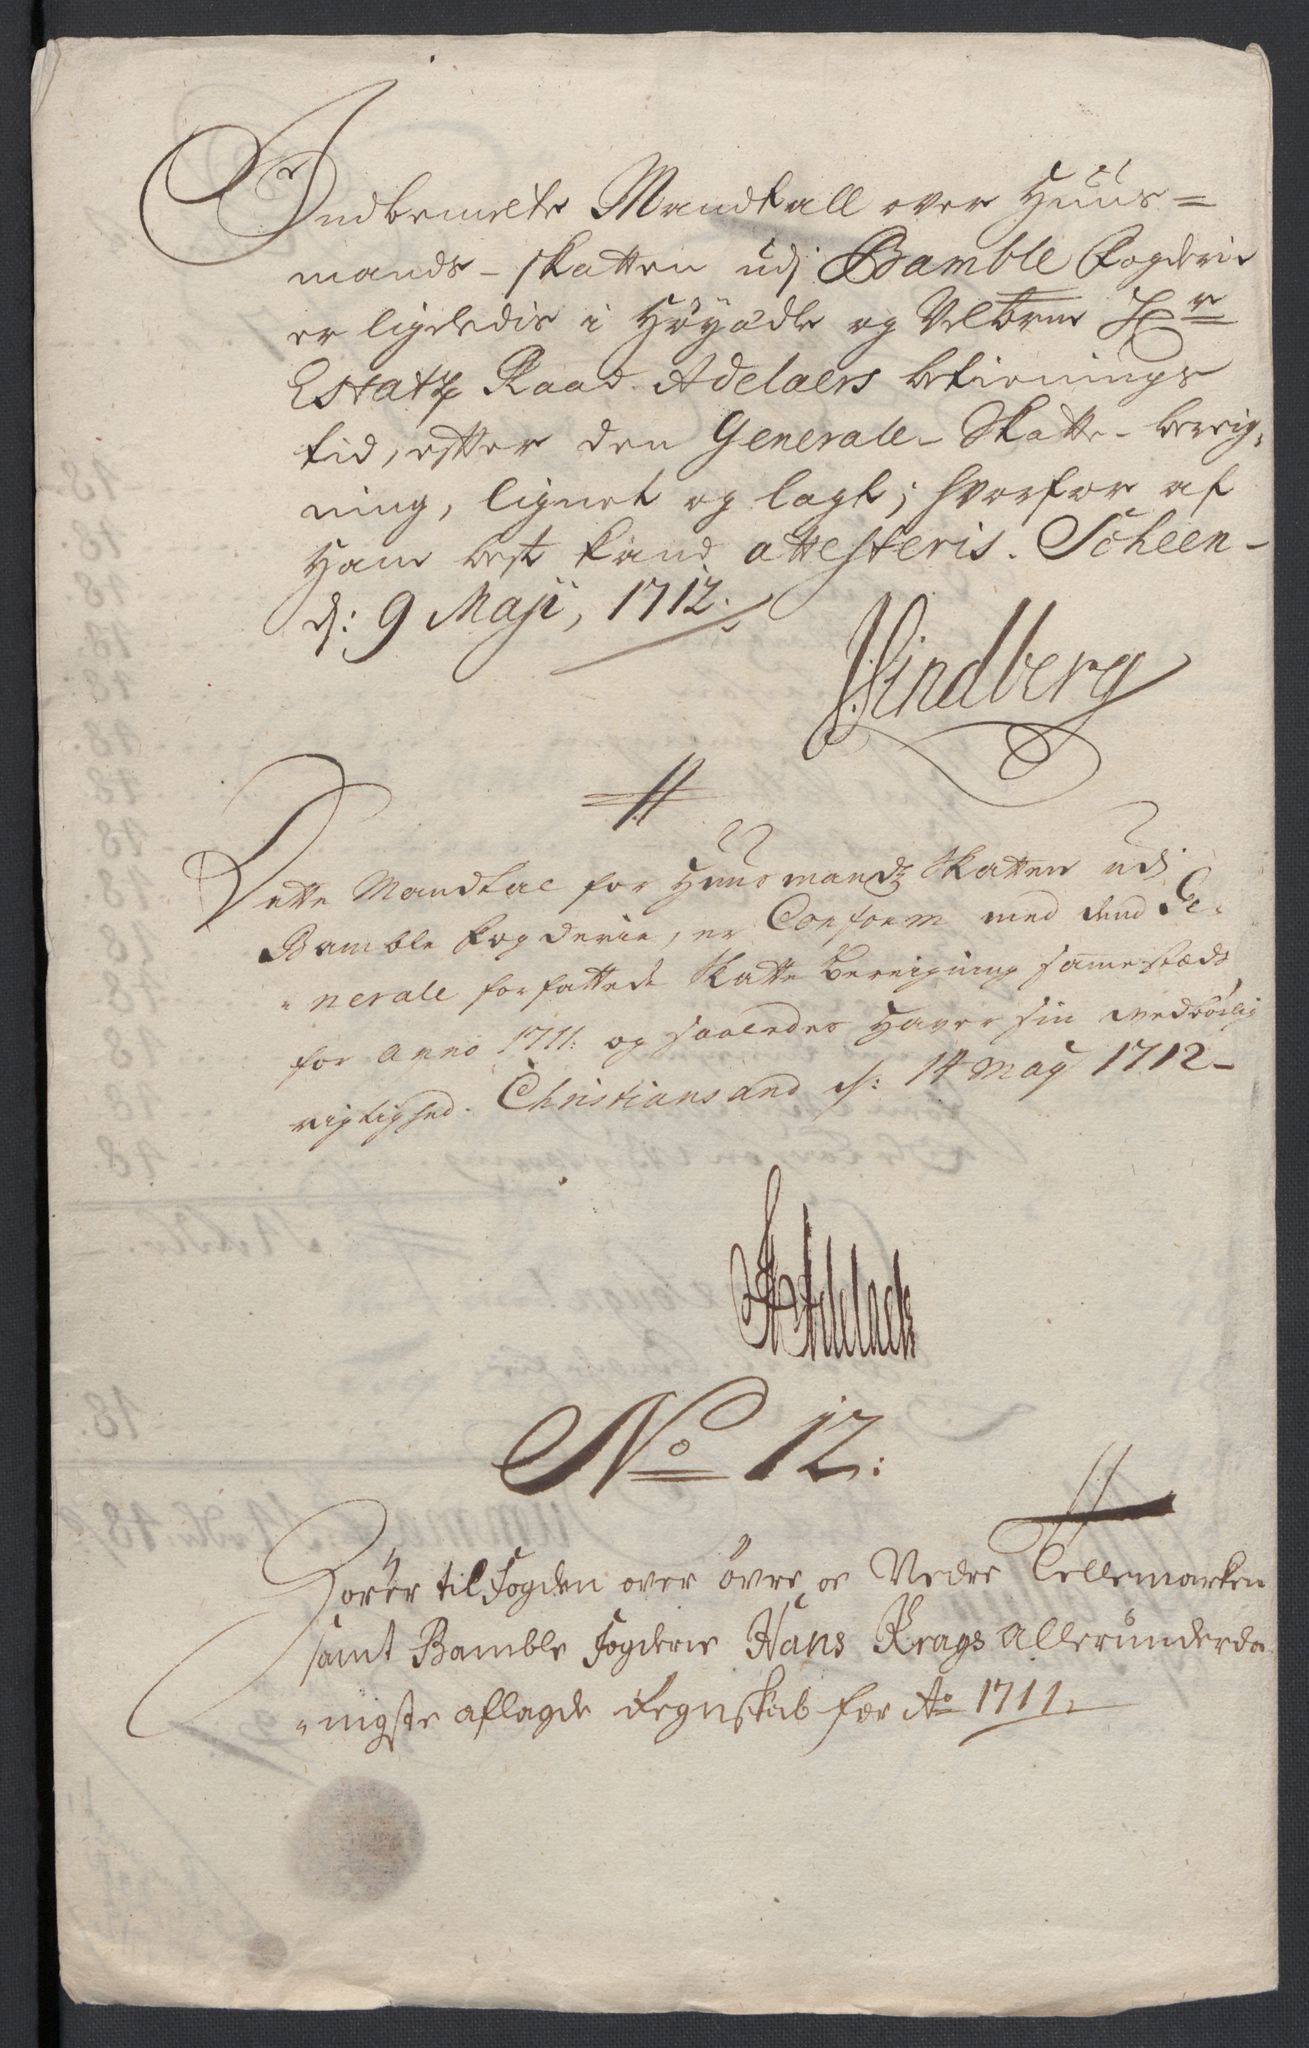 Indbemelte Mandtall over Huus=
mands-skatten udj Bamble Fogderie
er ligeledis i Høyædle og Velbrne Hr
Estatz Raad Adelaers betienings
tid, efter den Generale-Skatte-bereig,
ning, lignet og lagt; hvorfor af
Ham best kand attesteris. Scheen-
dj: 9 Maji, 1712.
Lindberg
Dette Mandtal for Huusmandz Skatten udj
Bamble Fogderie, er Conform med dend Ge,
nerale forfattede Skatte bereigning samestæds
for Anno 1711: og saaledes haver sin vedbørlig
rigtighed. Christiansand dj: 14 May 1712-
Adelaer
No 12:
Hører til Fogden over Øvre oc Nedre Tellemarken
samt Bamble Fogderie Hans Krags Allerunderda
nigste aflagde Regnskab for Ao 1711